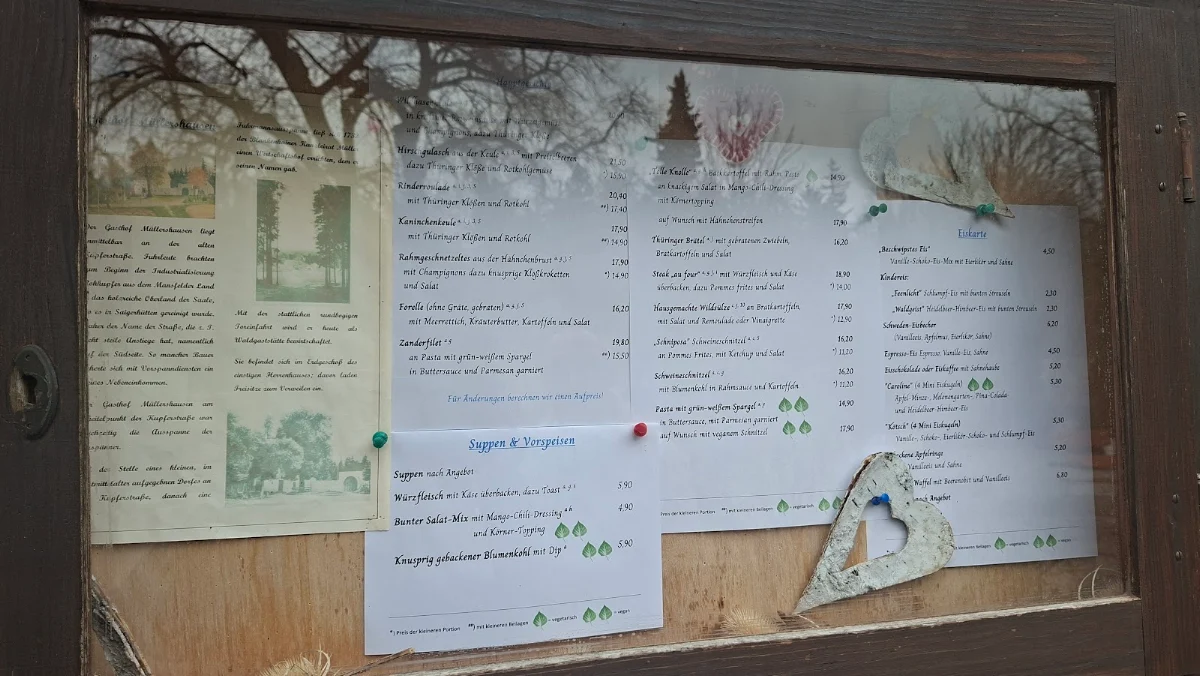 Der Gasthof Müllershausen liegt
an der alten
Kupferstraße. Fuhrleute brachten
Beginn der Industrialisierung
aus dem Mansfelder Land
das holzreiche Oberland der Saale,
der Name der Straße, die z. T.
steile Anstiege hat, namentlich
der Südseite. So mancher Bauer
sich mit Vorspanndiensten ein
Nebeneinkommen.
Gasthof Müllershausen am
der Kupferstraße war
die Ausspanne der
der Stelle eines kleinen, im
aufgegebenen Dorfes an
Kupferstraße, danach eine
ließ
der Blankenhainer
einen Wirtschaftshof errichten, dem er
seinen Namen gab.
Mit der stattlichen rundbogigen
Toreinfahrt wird er heute als
Waldgaststätte bewirtschaftet.
Sie befindet sich im Erdgeschoß des
einstigen Herrenhauses; davor laden
Freisitze zum Verweilen ein.
dazu Thüringer Klöße
Hirschgulasch aus der Keule mit Preiselbeeren 21,50
dazu Thüringer Klöße und Rotkohlgemüse
Rinderroulade 20,40
mit Thüringer Klößen und Rotkohl **) 17,40
Kaninchenkeule 17,90
mit Thüringer Klößen und Rotkohl **) 14,90
Rahmgeschnetzeltes aus der Hähnchenbrust 17,90
mit Champignons dazu knusprige Kloßkroketten *) 14,90
und Salat
Forelle (ohne Gräte, gebraten) 16,20
mit Meerrettich, Kräuterbutter, Kartoffeln und Salat
Zanderfilet 19,80
an Pasta mit grün-weißem Spargel **) 15,50
in Buttersauce und Parmesan garniert
Für Änderungen berechnen wir einen Aufpreis!
Suppen & Vorspeisen
Suppen nach Angebot
Würzfleisch mit Käse überbacken, dazu Toast 5,90
Bunter Salat-Mix mit Mango-Chili-Dressing 4,90
und Körner-Topping
Knusprig gebackener Blumenkohl mit Dip 5,90
*) Preis der kleineren Portion **) mit kleineren Beilagen = vegetarisch = vegan
"Tolle Knolle" Backkartoffel mit Rahm Pesto 14,90
an knackigem Salat in Mango-Chili-Dressing
mit Körnertopping
auf Wunsch mit Hähnchenstreifen 17,90
Thüringer Brätel mit gebratenen Zwiebeln, 16,20
Bratkartoffeln und Salat
Steak „au four" mit Würzfleisch und Käse 18,90
überbacken, dazu Pommes frites und Salat *) 14,00
Hausgemachte Wildsülze an Bratkartoffeln 17,90
mit Salat und Remoulade oder Vinaigrette *) 12,90
„Schniposa" Schweineschnitzel 16,20
an Pommes Frites, mit Ketchup und Salat *) 11,20
Schweineschnitzel 16,20
mit Blumenkohl in Rahmsauce und Kartoffeln *) 11,20
Pasta mit grün-weißem Spargel 14,90
in Buttersauce, mit Parmesan garniert
auf Wunsch mit veganem Schnitzel 17,90
Preis der kleineren Portion **) mit kleineren Beilagen = vegetarisch
Eiskarte
„Beschwipstes Eis" 4,50
Vanille-Schoko-Eis-Mix mit Eierlikör und Sahne
Kindereis:
„Feenlicht" Schlumpf-Eis mit bunten Streuseln 2,30
„Waldgeist" Heidelbeer-Himbeer-Eis mit bunten Streuseln 2,30
Schweden-Eisbecher 6,20
(Vanilleeis, Apfelmus, Eierlikör, Sahne)
Espresso-Eis Espresso, Vanille-Eis, Sahne 4,50
Eisschokolade oder Eiskaffee mit Sahnehaube 5,20
"Caroline" (4 Mini Eiskugeln) 5,30
Apfel-Minze-, Melonengarten-, Pina-Colada-
und Heidelbeer-Himbeer-Eis
"Kutsch" (4 Mini Eiskugeln) 5,30
Vanille-, Schoko-, Eierlikör-Schoko- und Schlumpf-Eis
Apfelringe 5,20
Vanilleeis und Sahne
Waffel mit Beerenobst und Vanilleeis 6,80
nach Angebot
Beilagen = vegetarisch = vegan